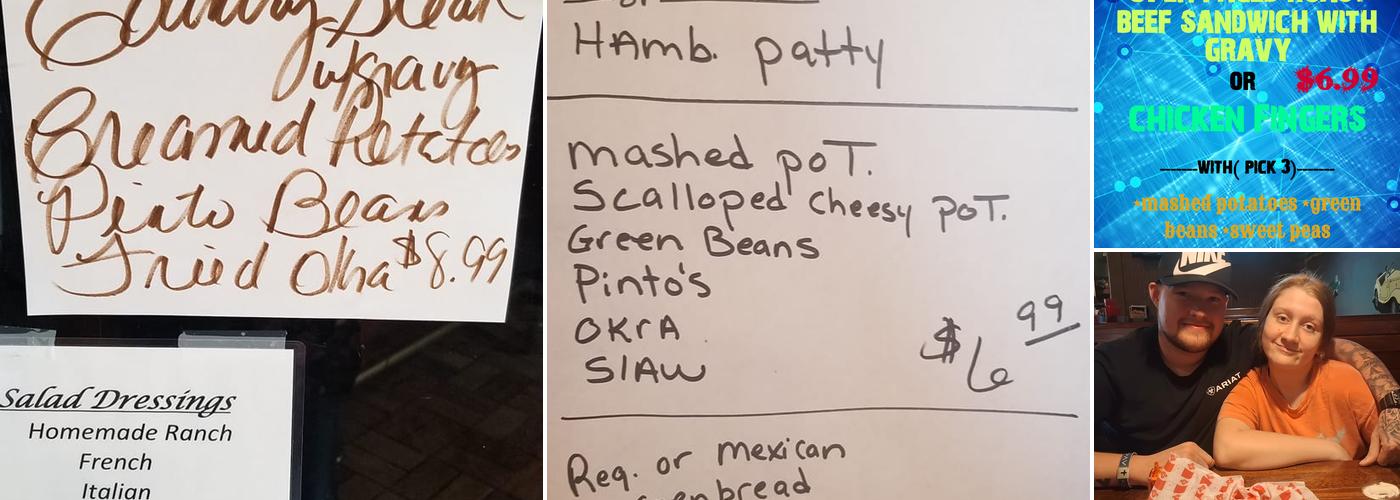 Country Steak
w/gravy
Creamed Potatoes
Pinto Beans
Fried Okra $8.99
Salad Dressings
Homemade Ranch
French
Italian
HAmb. patty
mashed poT.
Scalloped cheesy poT.
Green Beans
Pinto's
OKrA
SlAw
$6 99
Reg. or mexican
bread
BEEF SANDWICH WITH
GRAVY
OR $6.99
CHICKEN FINGERS
WITH( PICK 3)
•mashed potatoes •green
beans •sweet peas
NIKE
ARIAT